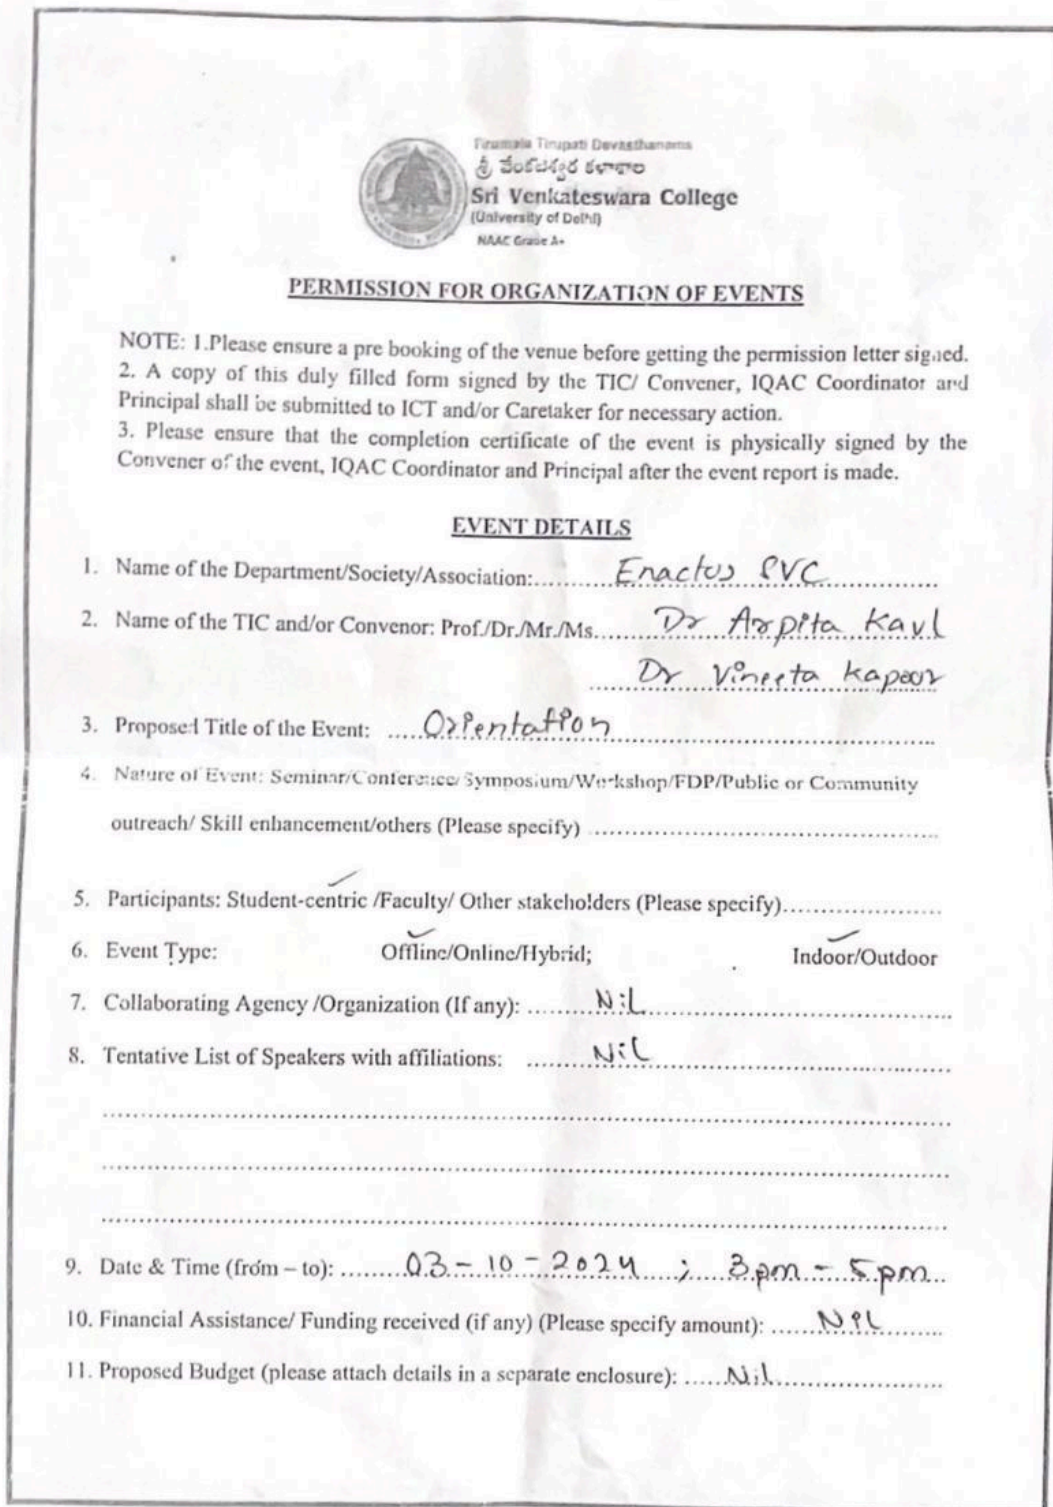 Tirumala Tirupati Devasthanams
శ్రీ వేంకటేశ్వర కళాశాల
Sri Venkateswara College
(University of Delhi)
NAAC Grade A+
PERMISSION FOR ORGANIZATION OF EVENTS
NOTE: 1.Please ensure a pre booking of the venue before getting the permission letter signed.
2. A copy of this duly filled form signed by the TIC/ Convener, IQAC Coordinator and
Principal shall be submitted to ICT and/or Caretaker for necessary action.
3. Please ensure that the completion certificate of the event is physically signed by the
Convener of the event, IQAC Coordinator and Principal after the event report is made.
EVENT DETAILS
1. Name of the Department/Society/Association: Enactus SVC
2. Name of the TIC and/or Convenor: Prof./Dr./Mr./Ms. Dr Arpita Kaul
Dr Vineeta Kapoor
3. Proposed Title of the Event: Orientation
4. Nature of Event: Seminar/Conference/Symposium/Workshop/FDP/Public or Community
outreach/ Skill enhancement/others (Please specify)
5. Participants: Student-centric /Faculty/ Other stakeholders (Please specify)
6. Event Type: Offline/Online/Hybrid; Indoor/Outdoor
7. Collaborating Agency /Organization (If any): Nil
8. Tentative List of Speakers with affiliations: Nil
9. Date & Time (from – to): 03-10-2024 ; 3pm - 5pm
10. Financial Assistance/ Funding received (if any) (Please specify amount): Nil
11. Proposed Budget (please attach details in a separate enclosure): Nil